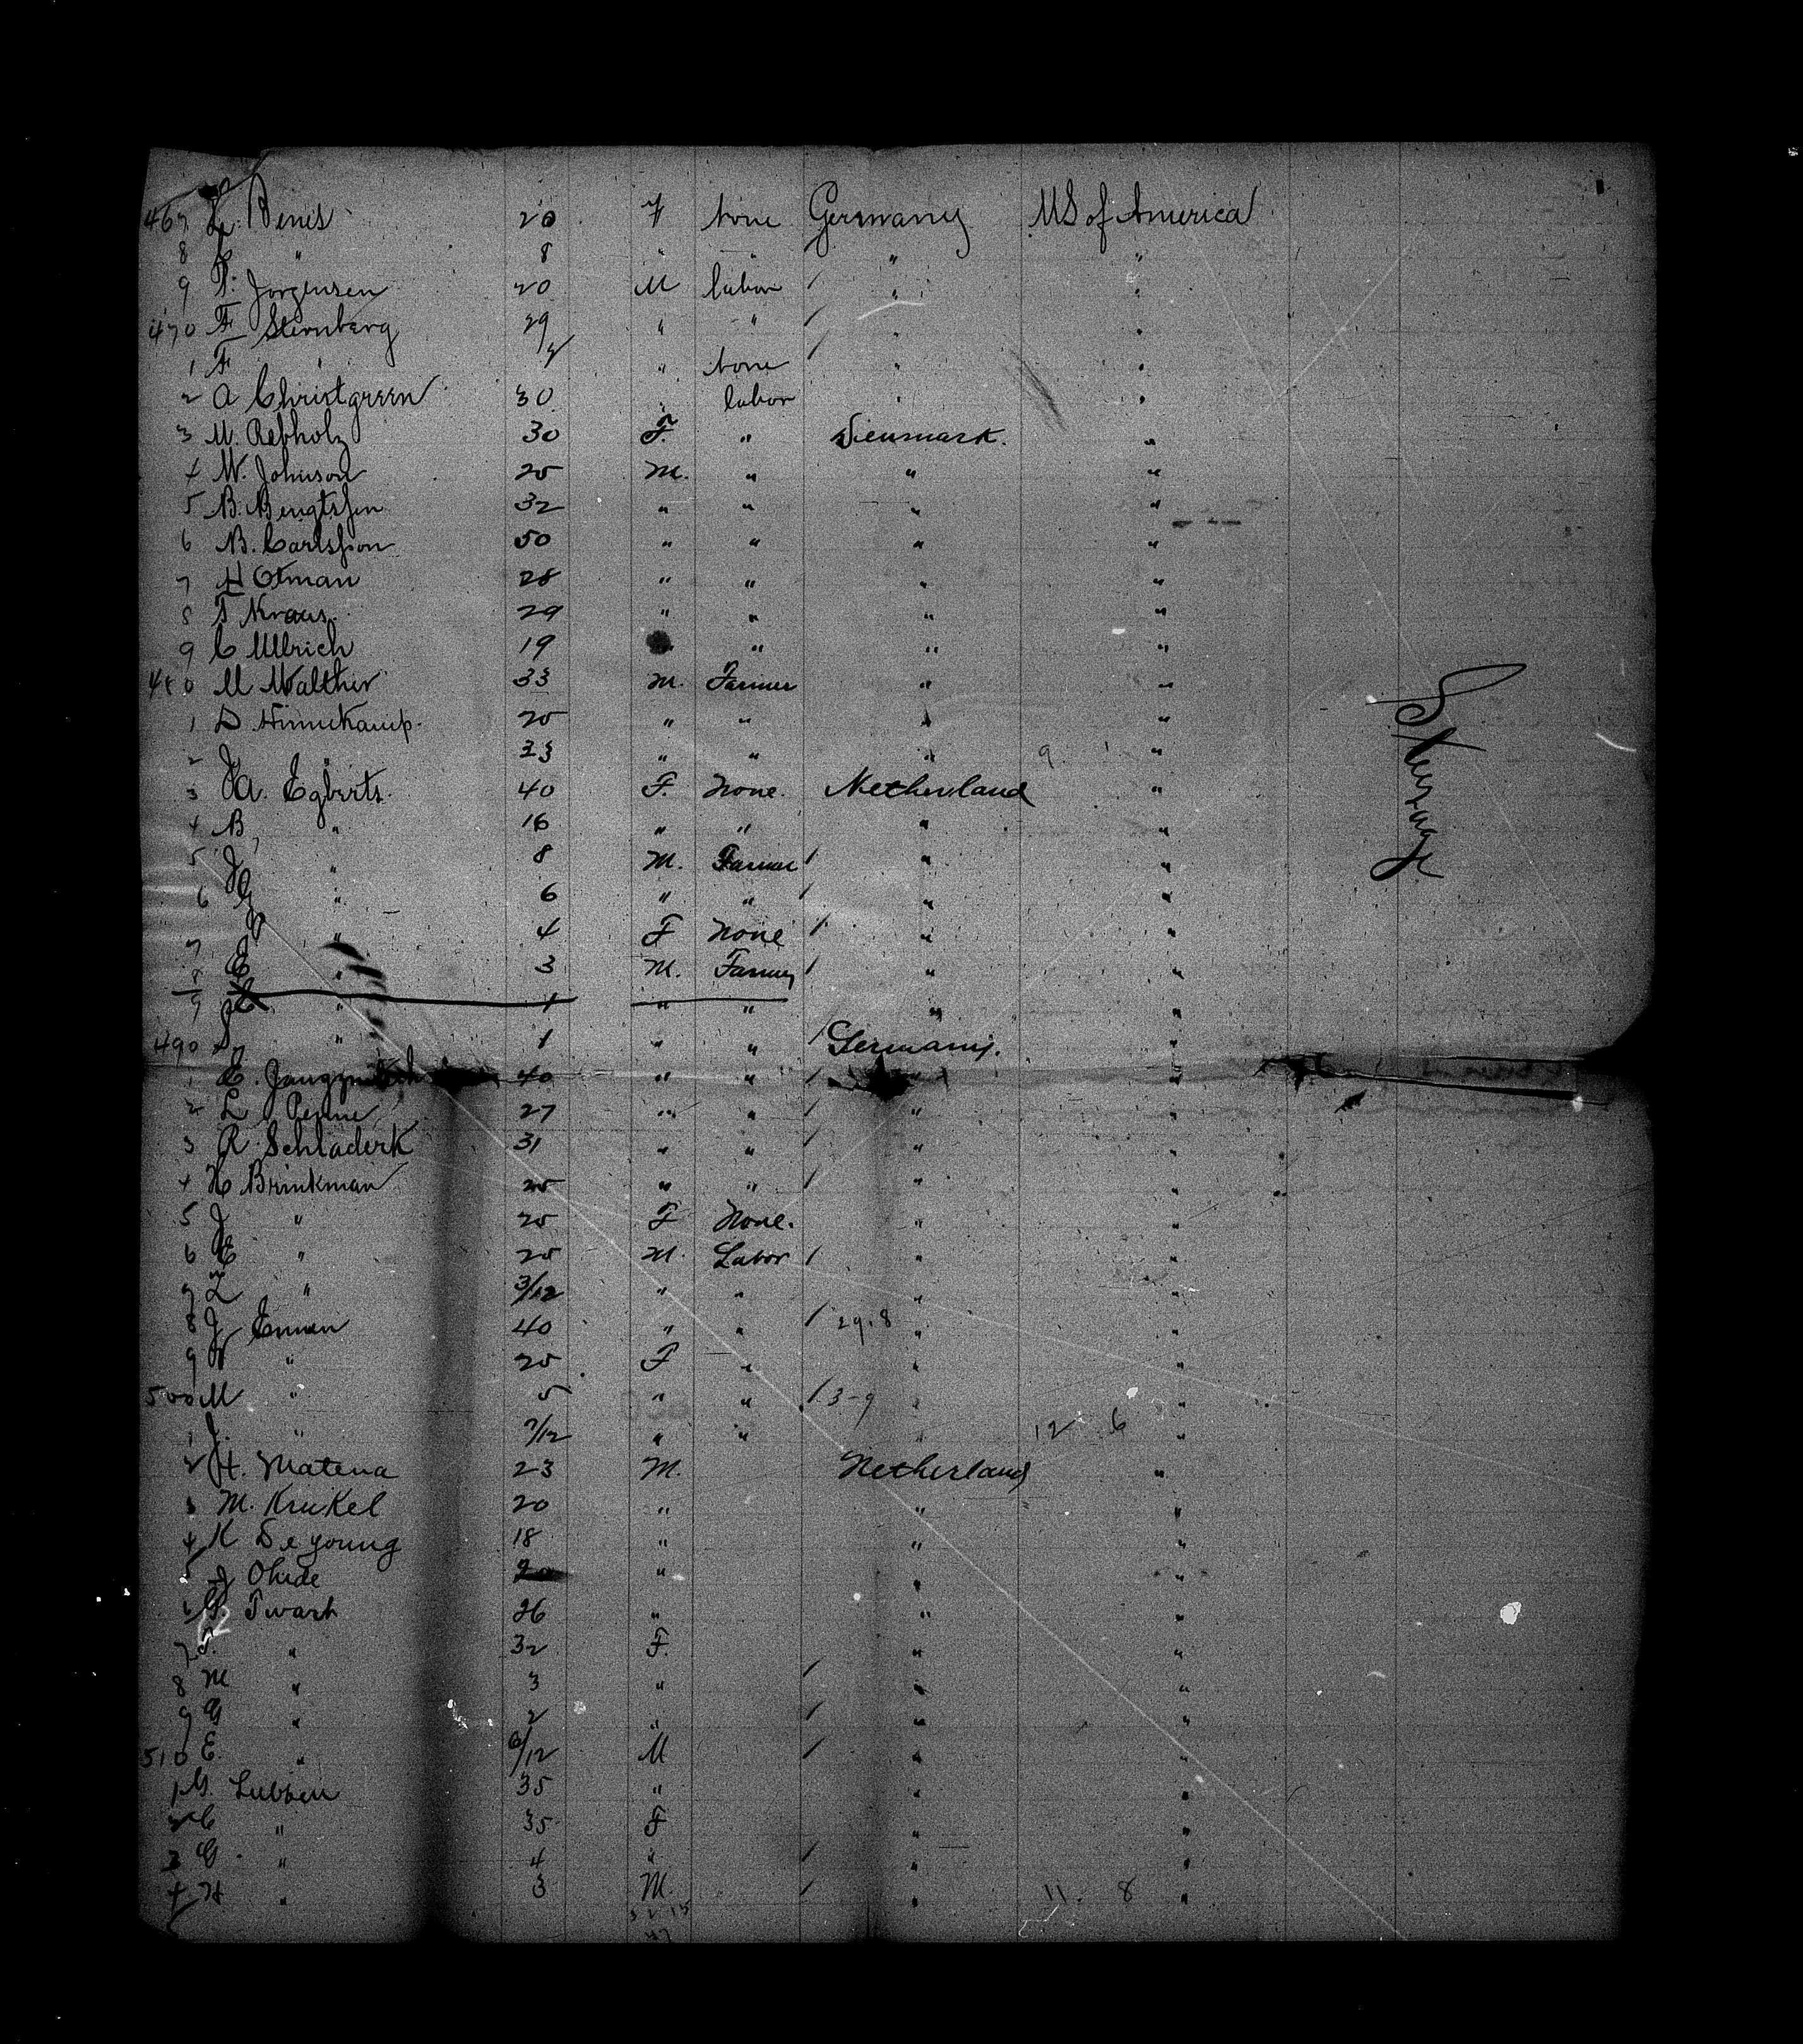 467 L. Benes 20 F None Germany US of America
8 " 8 " " " "
9 P. Jorgensen 20 M labor / " "
470 F Sternberg 29 " " / " "
1 F " " None / " "
2 A Christgreen 30 " labor " "
3 M. Rebholz 30 F. " Denmark. "
4 W. Johnson 25 M. " " "
5 B. Bengtssen 32 " " " "
6 B. Carlsson 50 " " " "
7 H Otman 28 " " " "
8 T Kraus. 29 " " " "
9 C Ullrich 19 " " "
480 M Walther 33 M. Farmer " "
1 D. Hinnekamp. 25 " " " "
2 J " 33 " " " 9. 1 "
3 A. Egberts. 40 F. None. Netherland "
4 B, " 16 " " " "
5 J " 8 M. Farmer / " "
6 G " 6 " " / " "
7 " 4 F None / " "
8 E " 3 M. Farmer / " "
9 " 1 " " " "
490 " 1 " " / Germany. "
1 E. 40 " " / " "
2 L Penne 27 " " / " "
3 R. Schladerk 31 " " / " "
4 H Brinkman 25 " " / " "
5 J " 25 F None. " "
6 E " 25 M. Labor / " "
7 L " 3/12 " " " "
8 J Enman 40 " " / 29.8 " "
9 " 25 F " " "
500 M " 5 " " / 3-9 " "
1 J. " 7/12 " " " 12 6 "
2 H. Matena 23 M. Netherland "
3 M. Krukel 20 " " "
4 K De young 18 " " "
5 J Ohide " " "
6 G. Twart 26 " " "
7 " 32 F. " "
8 M " 3 " / " "
9 G " 2 " / " "
510 E. " 6/12 M / " "
1 G. Lubben 35 " " "
2 C " 35 F " "
3 G. " 4 " / " "
4 H " 3 M. / " 11. 8 "
32 15
47
Steerage